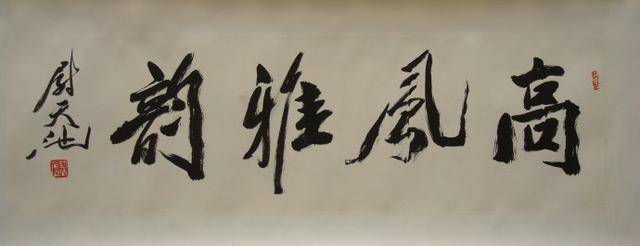 高風雅韵
尉天池